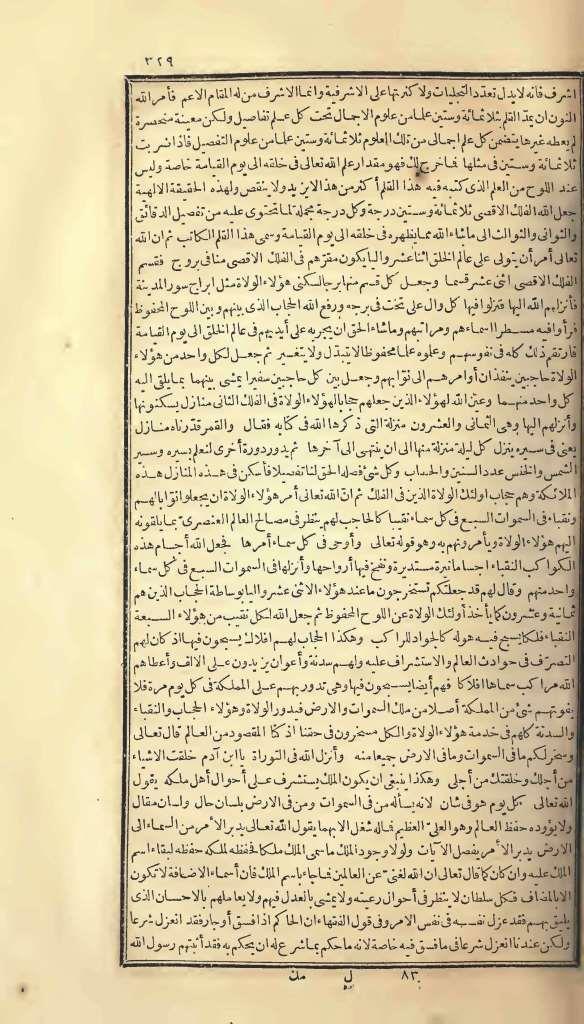 ٣٢٩
اشرف فانه لا يدل تعدد التجليات ولا كثرتها على الاشرفية وانما الاشرف من له المقام الاعم فأمر الله
النون ان يمد القلم بثلاثمائة وستين علما من علوم الاجمال تحت كل علم تفاصيل ولكن معينة منحصرة
لم يعطه غيرها يتضمن كل علم اجمالى من تلك العلوم ثلاثمائة وستين علما من علوم التفصيل فاذا ضربت
ثلاثمائة وستين فى مثلها فما خرج لك فهو مقدار علم الله تعالى فى خلقه الى يوم القيامة خاصة وليس
عند اللوح من العلم الذى كتبه فيه هذا القلم أكثر من هذا لا يزيد ولا ينقص ولهذه الحقيقة الالهية
جعل الله الفلك الاقصى ثلاثمائة وستين درجة وكل درجة مجملة لما تحتوى عليه من تفصيل الدقائق
والثوانى والثوالث الى ما شاء الله مما يظهره فى خلقه الى يوم القيامة وسمى هذا القلم الكاتب ثم ان الله
تعالى أمر أن يتولى على عالم الخلق اثنا عشر واليا يكون مقرهم فى الفلك الاقصى منا فى بروج فقسم
الفلك الاقصى اثنى عشر قسما وجعل كل قسم منها برجا لسكنى هؤلاء الولاة مثل ابراج سور المدينة
فأنزلهم الله اليها فنزلوا فيها كل وال على تخت فى برجه ورفع الله الحجاب الذى بينهم وبين اللوح المحفوظ
فرأوا فيه مسطرا اسماءهم ومراتبهم وما شاء الحق ان يجريه على أيديهم فى عالم الخلق الى يوم القيامة
فارتقم ذلك كله فى نفوسهم وعلموه علما محفوظا لا يتبدل ولا يتغير ثم جعل لكل واحد من هؤلاء
الولاة حاجبين ينفذان أوامرهم الى نوّابهم وجعل بين كل حاجبين سفيرا يمشى بينهما بما يلقى اليه
كل واحد منهما وعين الله لهؤلاء الذين جعلهم حجابا لهؤلاء الولاة فى الفلك الثانى منازل يسكنونها
وأنزلهم اليها وهى الثمانى والعشرون منزلة التى ذكرها الله فى كتابه فقال والقمر قدرناه منازل
يعنى فى سيره ينزل كل ليلة منزلة منها الى ان ينتهى الى آخرها ثم يدور دورة أخرى لتعلم بسيره وسير
الشمس والخنس عدد السنين والحساب وكل شئ فصله الحق لنا تفصيلا فأسكن فى هذه المنازل هذه
الملائكة وهم حجاب اولئك الولاة الذين فى الفلك ثم انّ الله تعالى أمر هؤلاء الولاة ان يجعلوا نوّابا لهم
ونقباء فى السموات السبع فى كل سماء نقيبا كالحاجب لهم ينظر فى مصالح العالم العنصرى بما يلقونه
اليهم هؤلاء الولاة ويأمرونهم به وهو قوله تعالى وأوحى فى كل سماء أمرها فجعل الله أجسام هذه
الكواكب النقباء اجساما نيرة مستديرة ونفخ فيها أرواحها وأنزلها فى السموات السبع فى كل سماء
واحد منهم وقال لهم قد جعلتكم تستخرجون ما عند هؤلاء الاثنى عشر واليا بوساطة الحجاب الذين هم
ثمانية وعشرون كما يأخذ أولئك الولاة عن اللوح المحفوظ ثم جعل الله لكل نقيب من هؤلاء السبعة
النقباء فلكا يسبح فيه هو له كالجواد للراكب وهكذا الحجاب لهم افلاك يسبحون فيها اذ كان لهم
التصرّف فى حوادث العالم والاستشراف عليه ولهم سدنة وأعوان يزيدون على الالف وأعطاهم
الله مراكب سماها افلاكا فهم أيضا يسبحون فيها وهى تدور بهم على المملكة فى كل يوم مرة فلا
يفوتهم شئ من المملكة أصلا من ملك السموات والارض فيدور الولاة وهؤلاء الحجاب والنقباء
والسدنة كلهم فى خدمة هؤلاء الولاة والكل مسخرون فى حقنا اذ كنا المقصود من العالم قال تعالى
وسخر لكم ما فى السموات وما فى الارض جميعا منه وأنزل الله فى التوراة يا ابن آدم خلقت الاشياء
من أجلك وخلقتك من أجلى وهكذا ينبغى ان يكون الملك يستشرف على أحوال أهل ملكه يقول
الله تعالى كل يوم هو فى شان لانه يسأله من فى السموات ومن فى الارض بلسان حال ولسان مقال
ولا يؤوده حفظ العالم وهو العلىّ العظيم فما له شغل الا بهما يقول الله تعالى يدبر الأمر من السماء الى
الارض يدبر الأمر يفصل الآيات ولولا وجود الملك ما سمى الملك ملكا فحفظه لملكه حفظه لبقاء اسم
الملك عليه وان كان كما قال تعالى ان الله لغنىّ عن العالمين فما جاء باسم الملك فان أسماء الاضافة لا تكون
الا بالمضاف فكل سلطان لا ينظر فى أحوال رعيته ولا يمشى بالعدل فيهم ولا يعاملهم بالاحسان الذى
يليق بهم فقد عزل نفسه فى نفس الامر وفى قول الفقهاء ان الحاكم اذا فسق أو جار فقد انعزل شرعا
ولكن عندنا انعزل شرعا فى ما فسق فيه خاصة لانه ما حكم بما شرع له ان يحكم به فقد أثبتهم رسول الله
٨٣ ل مك